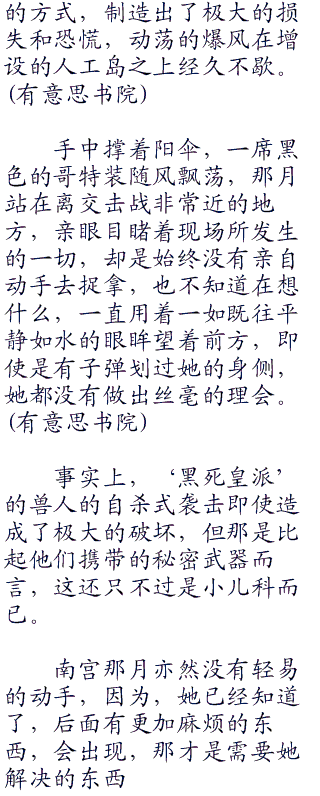 的方式，制造出了极大的损
失和恐慌，动荡的爆风在增
设的人工岛之上经久不歇。
(有意思书院)
手中撑着阳伞，一席黑
色的哥特装随风飘荡，那月
站在离交击战非常近的地
方，亲眼目睹着现场所发生
的一切，却是始终没有亲自
动手去捉拿，也不知道在想
什么，一直用着一如既往平
静如水的眼眸望着前方，即
使是有子弹划过她的身侧，
她都没有做出丝毫的理会。
(有意思书院)
事实上，‘黑死皇派’
的兽人的自杀式袭击即使造
成了极大的破坏，但那是比
起他们携带的秘密武器而
言，这还只不过是小儿科而
已。
南宫那月亦然没有轻易
的动手，因为，她已经知道
了，后面有更加麻烦的东
西，会出现，那才是需要她
解决的东西